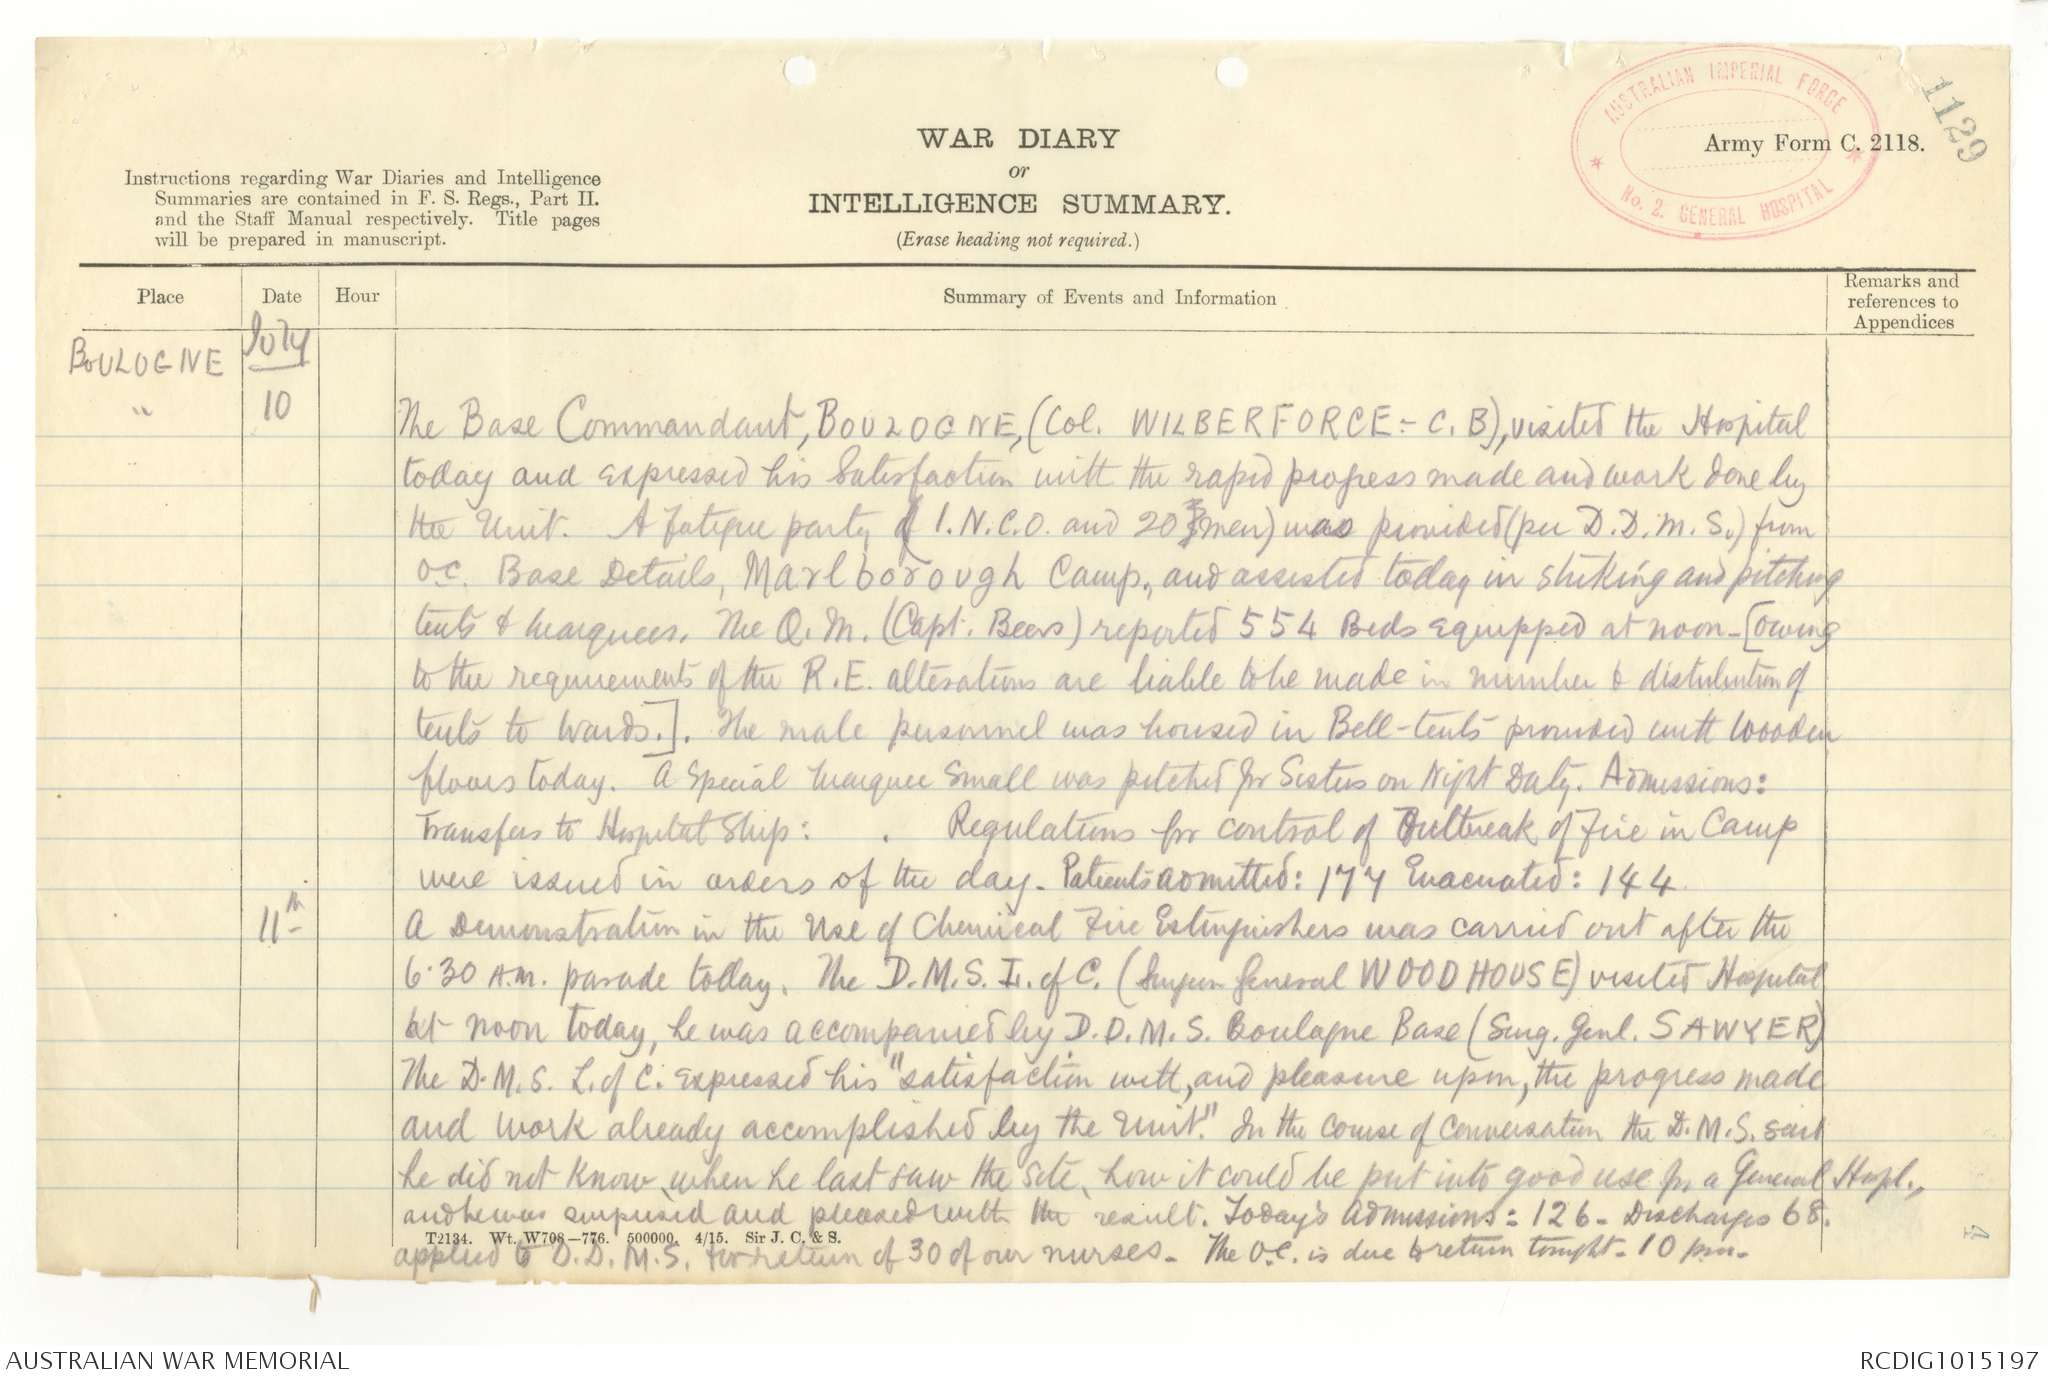 AUSTRALIAN IMPERIAL FORCE
No. 2. GENERAL HOSPITAL
1129
WAR DIARY
or
INTELLIGENCE SUMMARY.
(Erase heading not required.)
Army Form C. 2118.
Instructions regarding War Diaries and Intelligence
Summaries are contained in F. S. Regs., Part II.
and the Staff Manual respectively. Title pages
will be prepared in manuscript.
Place
Date
Hour
Summary of Events and Information
Remarks and
references to
Appendices
BOULOGNE
July
" 10
The Base Commandant, BOULOGNE, (Col. WILBERFORCE - C.B), visited the Hospital
today and expressed his Satisfaction with the rapid progress made and work done by
the Unit. A fatigue party (1. N.C.O. and 20 men) was provided (per D.D.M.S.) from
O.C. Base Details, Marlborough Camp., and assisted today in striking and pitching
tents & marquees. The Q.M. (Capt. Beers) reported 554 Beds equipped at noon - [owing
to the requirements of the R.E. alterations are liable to be made in number & distribution of
tents to Wards.]. The male personnel was housed in Bell-tents provided with wooden
floors today. A Special Marquee Small was pitched for Sisters on Night Duty. Admissions:
Transfers to Hospital Ship: . Regulations for control of Outbreak of Fire in Camp
were issued in orders of the day - Patients admitted: 177 Evacuated: 144
11th
A Demonstration in the Use of Chemical Fire Extinguishers was carried out after the
6.30 A.M. parade today. The D.M.S. L. of C. (Surgeon General WOODHOUSE) visited Hospital
at noon today, he was accompanied by D.D.M.S. Boulogne Base (Surg. Genl. SAWYER)
The D.M.S. L. of C. expressed his "satisfaction with, and pleasure upon, the progress made
and work already accomplished by the Unit." In the course of conversation the D.M.S. said
he did not know, when he last saw the site, how it could be put into good use for a General Hospl.,
and he was surprised and pleased with the result. Today's Admissions: 126 - Discharges 68.
T2134. Wt. W708—776. 500000. 4/15. Sir J. C. & S.
applied to D.D.M.S. for return of 30 of our nurses - The O.C. is due to return tonight - 10 pm -
AUSTRALIAN WAR MEMORIAL
RCDIG1015197